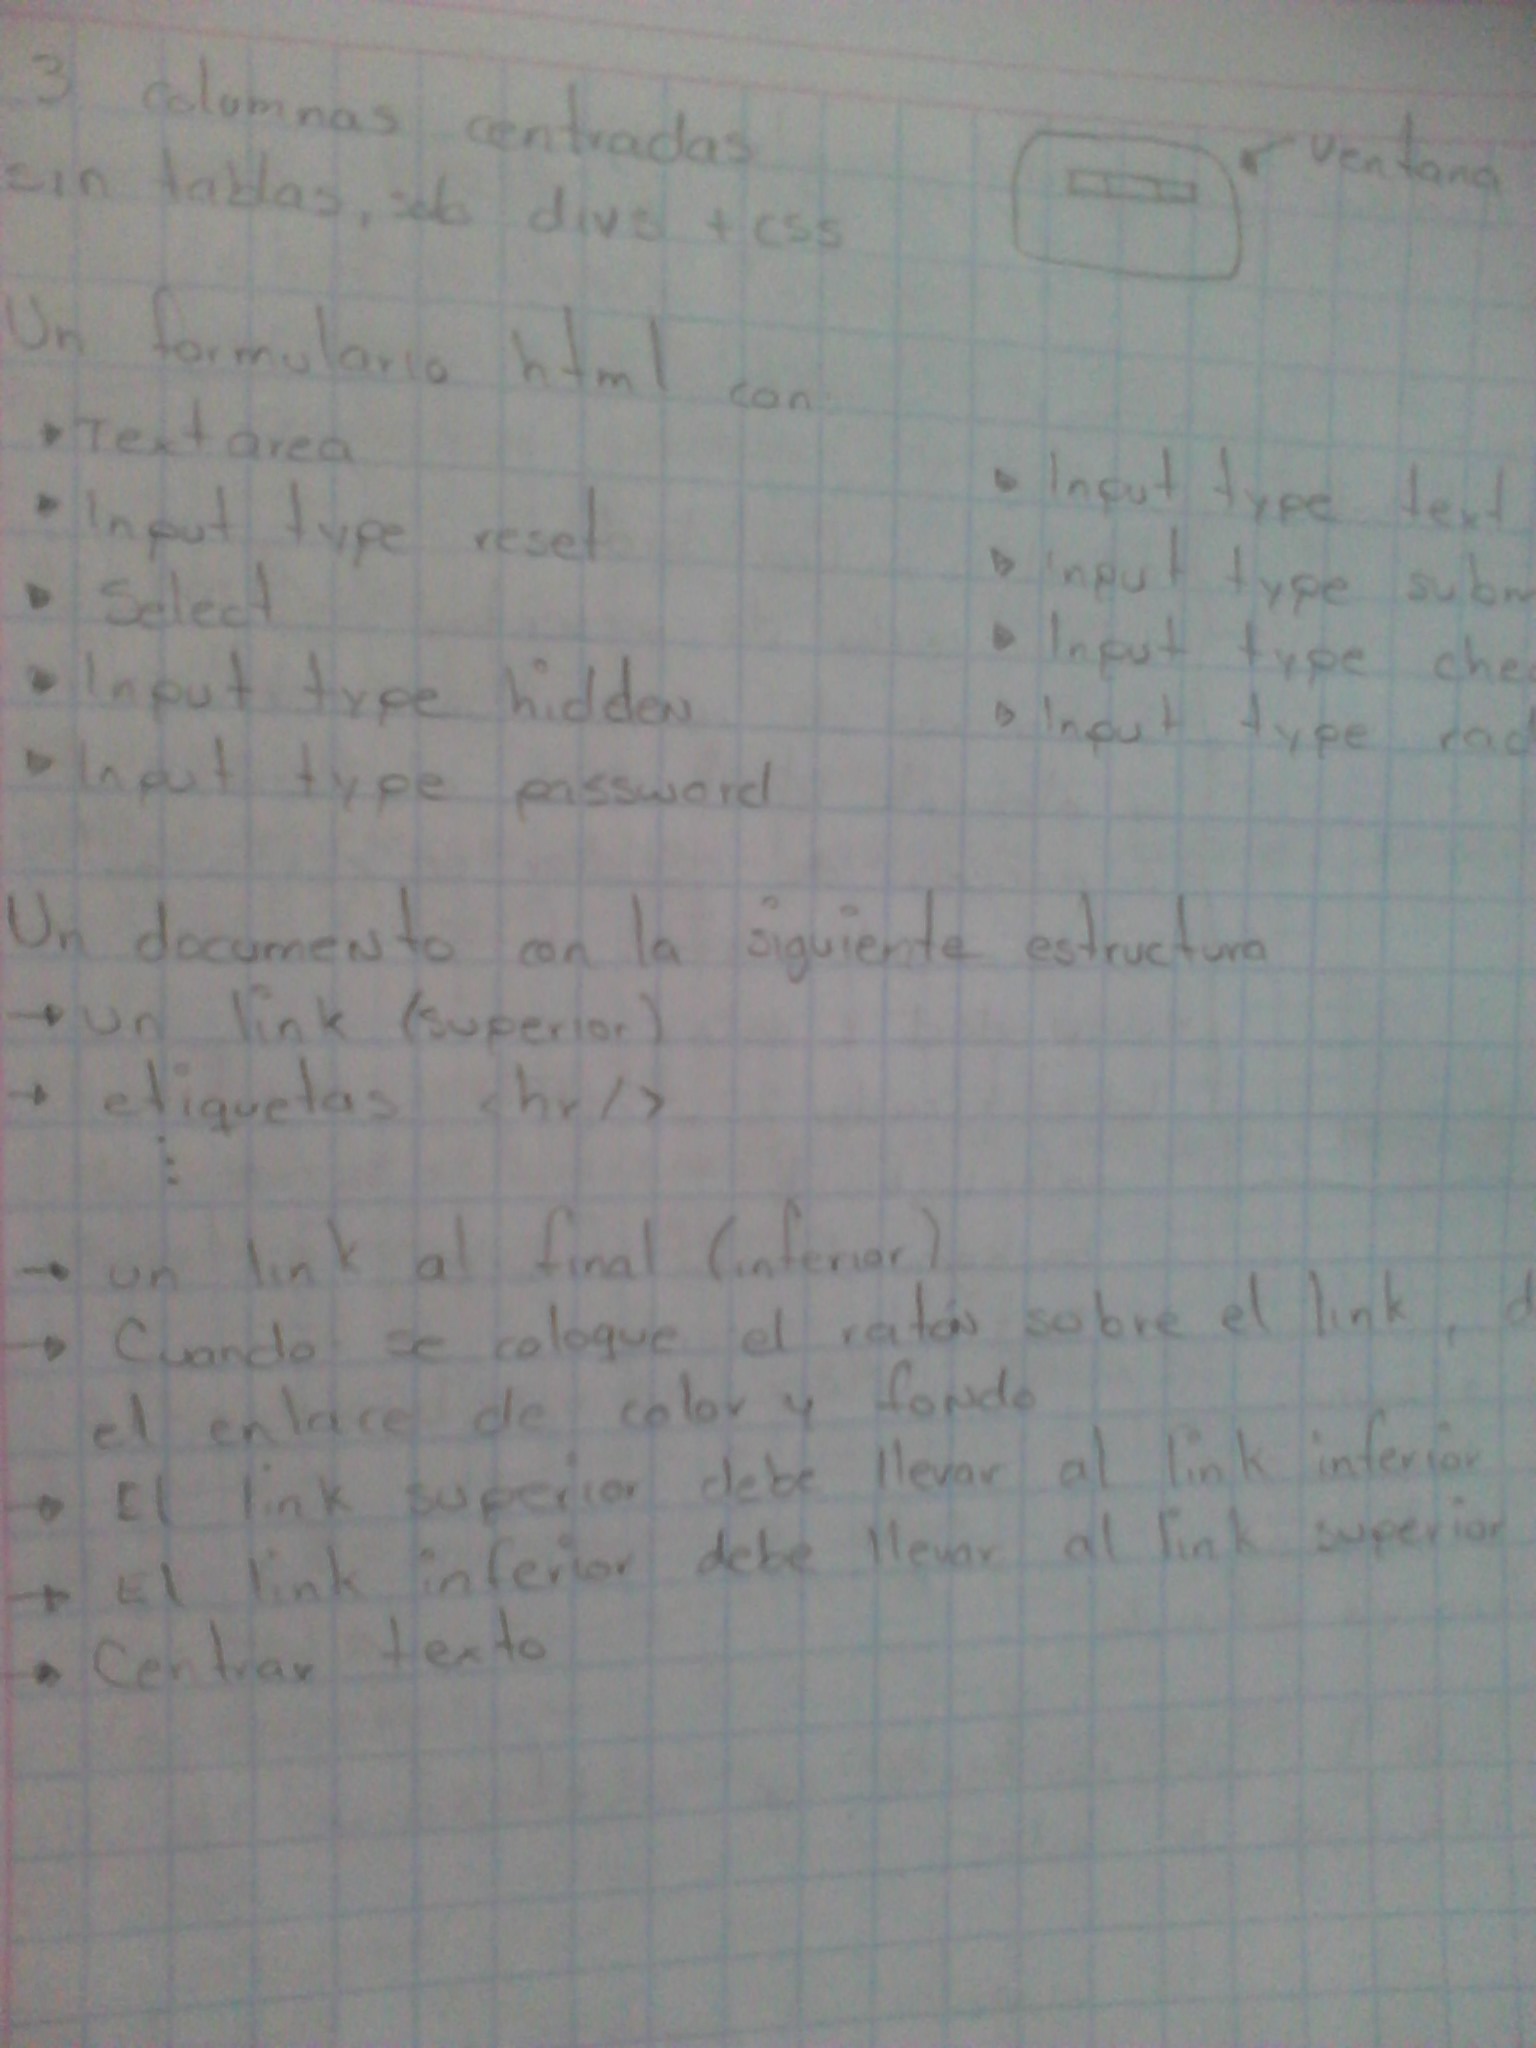 3 columnas centradas
Ventana
sin tablas, divs + css
Un formulario html con
Textarea
Input type text
Input type reset
Input type subm
Select
Input type chec
Input type hidden
Input type rad
Input type password
Un documento con la siguiente estructura
→ Un link (superior)
→ etiquetas <hr/>
⋮
→ un link al final (inferior)
→ Cuando se coloque el ratón sobre el link, d
el enlace de color y fondo
→ El link superior debe llevar al link inferior
→ El link inferior debe llevar al link superior
→ Centrar texto